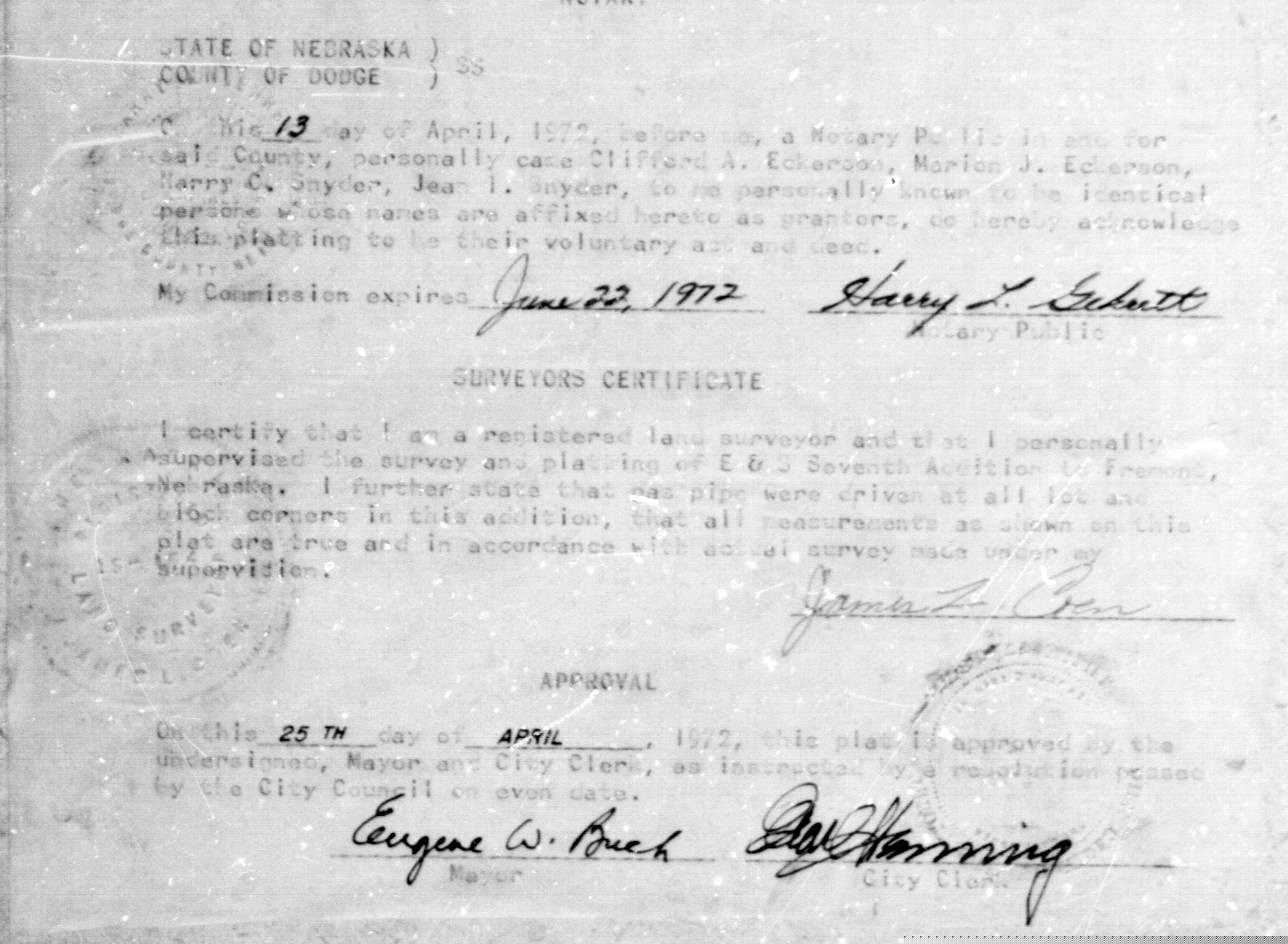 NOTARY
STATE OF NEBRASKA )
COUNTY OF DODGE ) SS
On this 13 day of April, 1972, before me, a Notary Public in and for
said County, personally came Clifford A. Eckerson, Marion J. Eckerson,
Harry C. Snyder, Jean I. Snyder, to me personally known to be identical
persons whose names are affixed hereto as grantors, do hereby acknowledge
this platting to be their voluntary act and deed.
My Commission expires June 22, 1972 Harry L.
Notary Public
SURVEYORS CERTIFICATE
I certify that I am a registered land surveyor and that I personally
supervised the survey and platting of E & S Seventh Addition to Fremont,
Nebraska. I further state that gas pipe were driven at all lot and
block corners in this addition, that all measurements as shown on this
plat are true and in accordance with actual survey made under my
supervision.
James L. Coen
LAND SURVEYOR
JAMES L. COEN
APPROVAL
On this 25 TH day of APRIL, 1972, this plat is approved by the
undersigned, Mayor and City Clerk, as instructed by a resolution passed
by the City Council on even date.
Eugene W. Buck Hanning
Mayor City Clerk